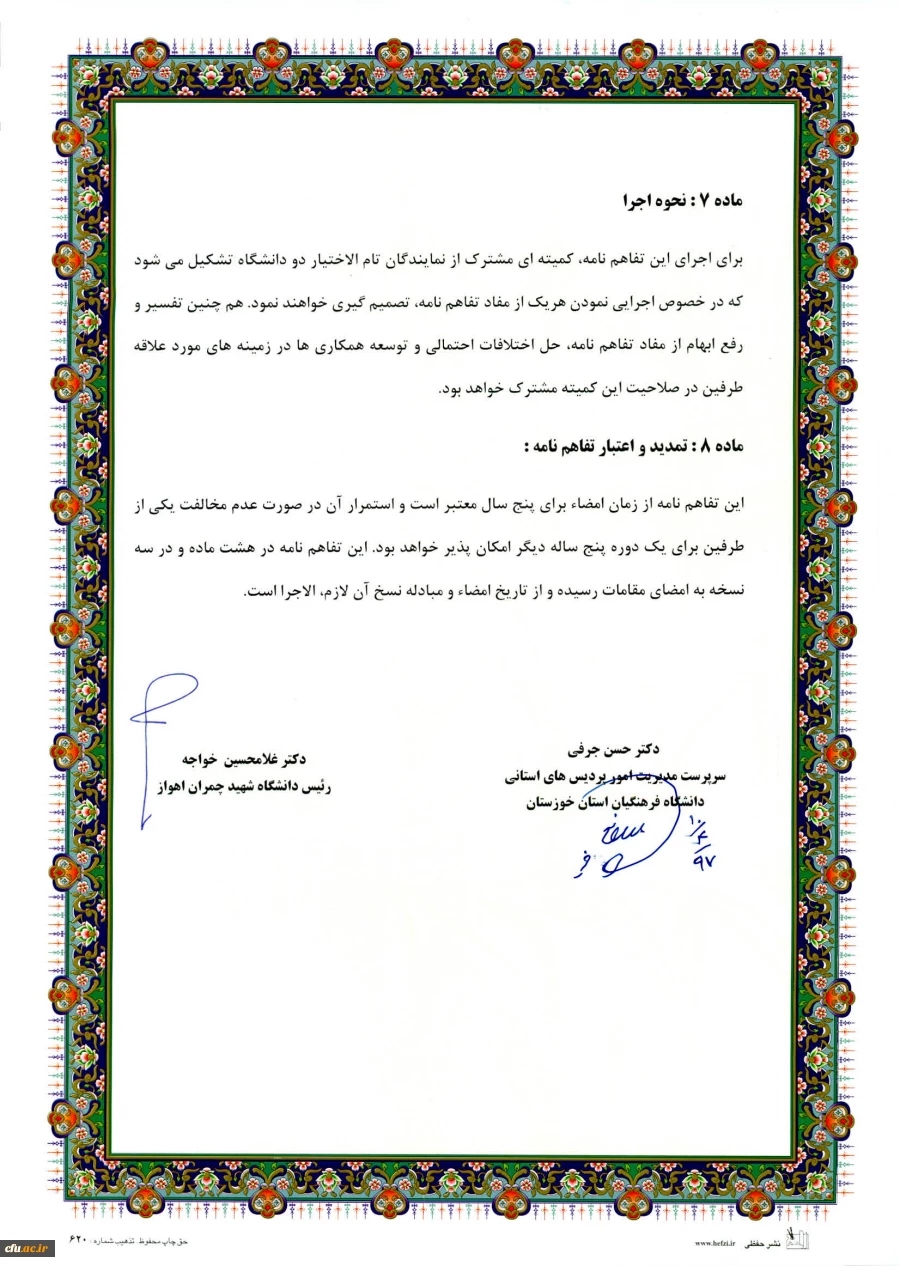 ماده ۷ : نحوه اجرا
برای اجرای این تفاهم نامه، کمیته ای مشترک از نمایندگان تام الاختیار دو دانشگاه تشکیل می شود
که در خصوص اجرایی نمودن هریک از مفاد تفاهم نامه، تصمیم گیری خواهند نمود. هم چنین تفسیر و
رفع ابهام از مفاد تفاهم نامه، حل اختلافات احتمالی و توسعه همکاری ها در زمینه های مورد علاقه
طرفین در صلاحیت این کمیته مشترک خواهد بود.
ماده ۸ : تمدید و اعتبار تفاهم نامه :
این تفاهم نامه از زمان امضاء برای پنج سال معتبر است و استمرار آن در صورت عدم مخالفت یکی از
طرفین برای یک دوره پنج ساله دیگر امکان پذیر خواهد بود. این تفاهم نامه در هشت ماده و در سه
نسخه به امضای مقامات رسیده و از تاریخ امضاء و مبادله نسخ آن لازم، الاجرا است.
دکتر حسن جرفی
سرپرست مدیریت امور پردیس های استانی
دانشگاه فرهنگیان استان خوزستان
۱۰/۴/۹۷
دکتر غلامحسین خواجه
رئیس دانشگاه شهید چمران اهواز
نشر حفظی www.hefzi.ir
حق چاپ محفوظ. تذهیب شماره: ۶۲۰
cfu.ac.ir